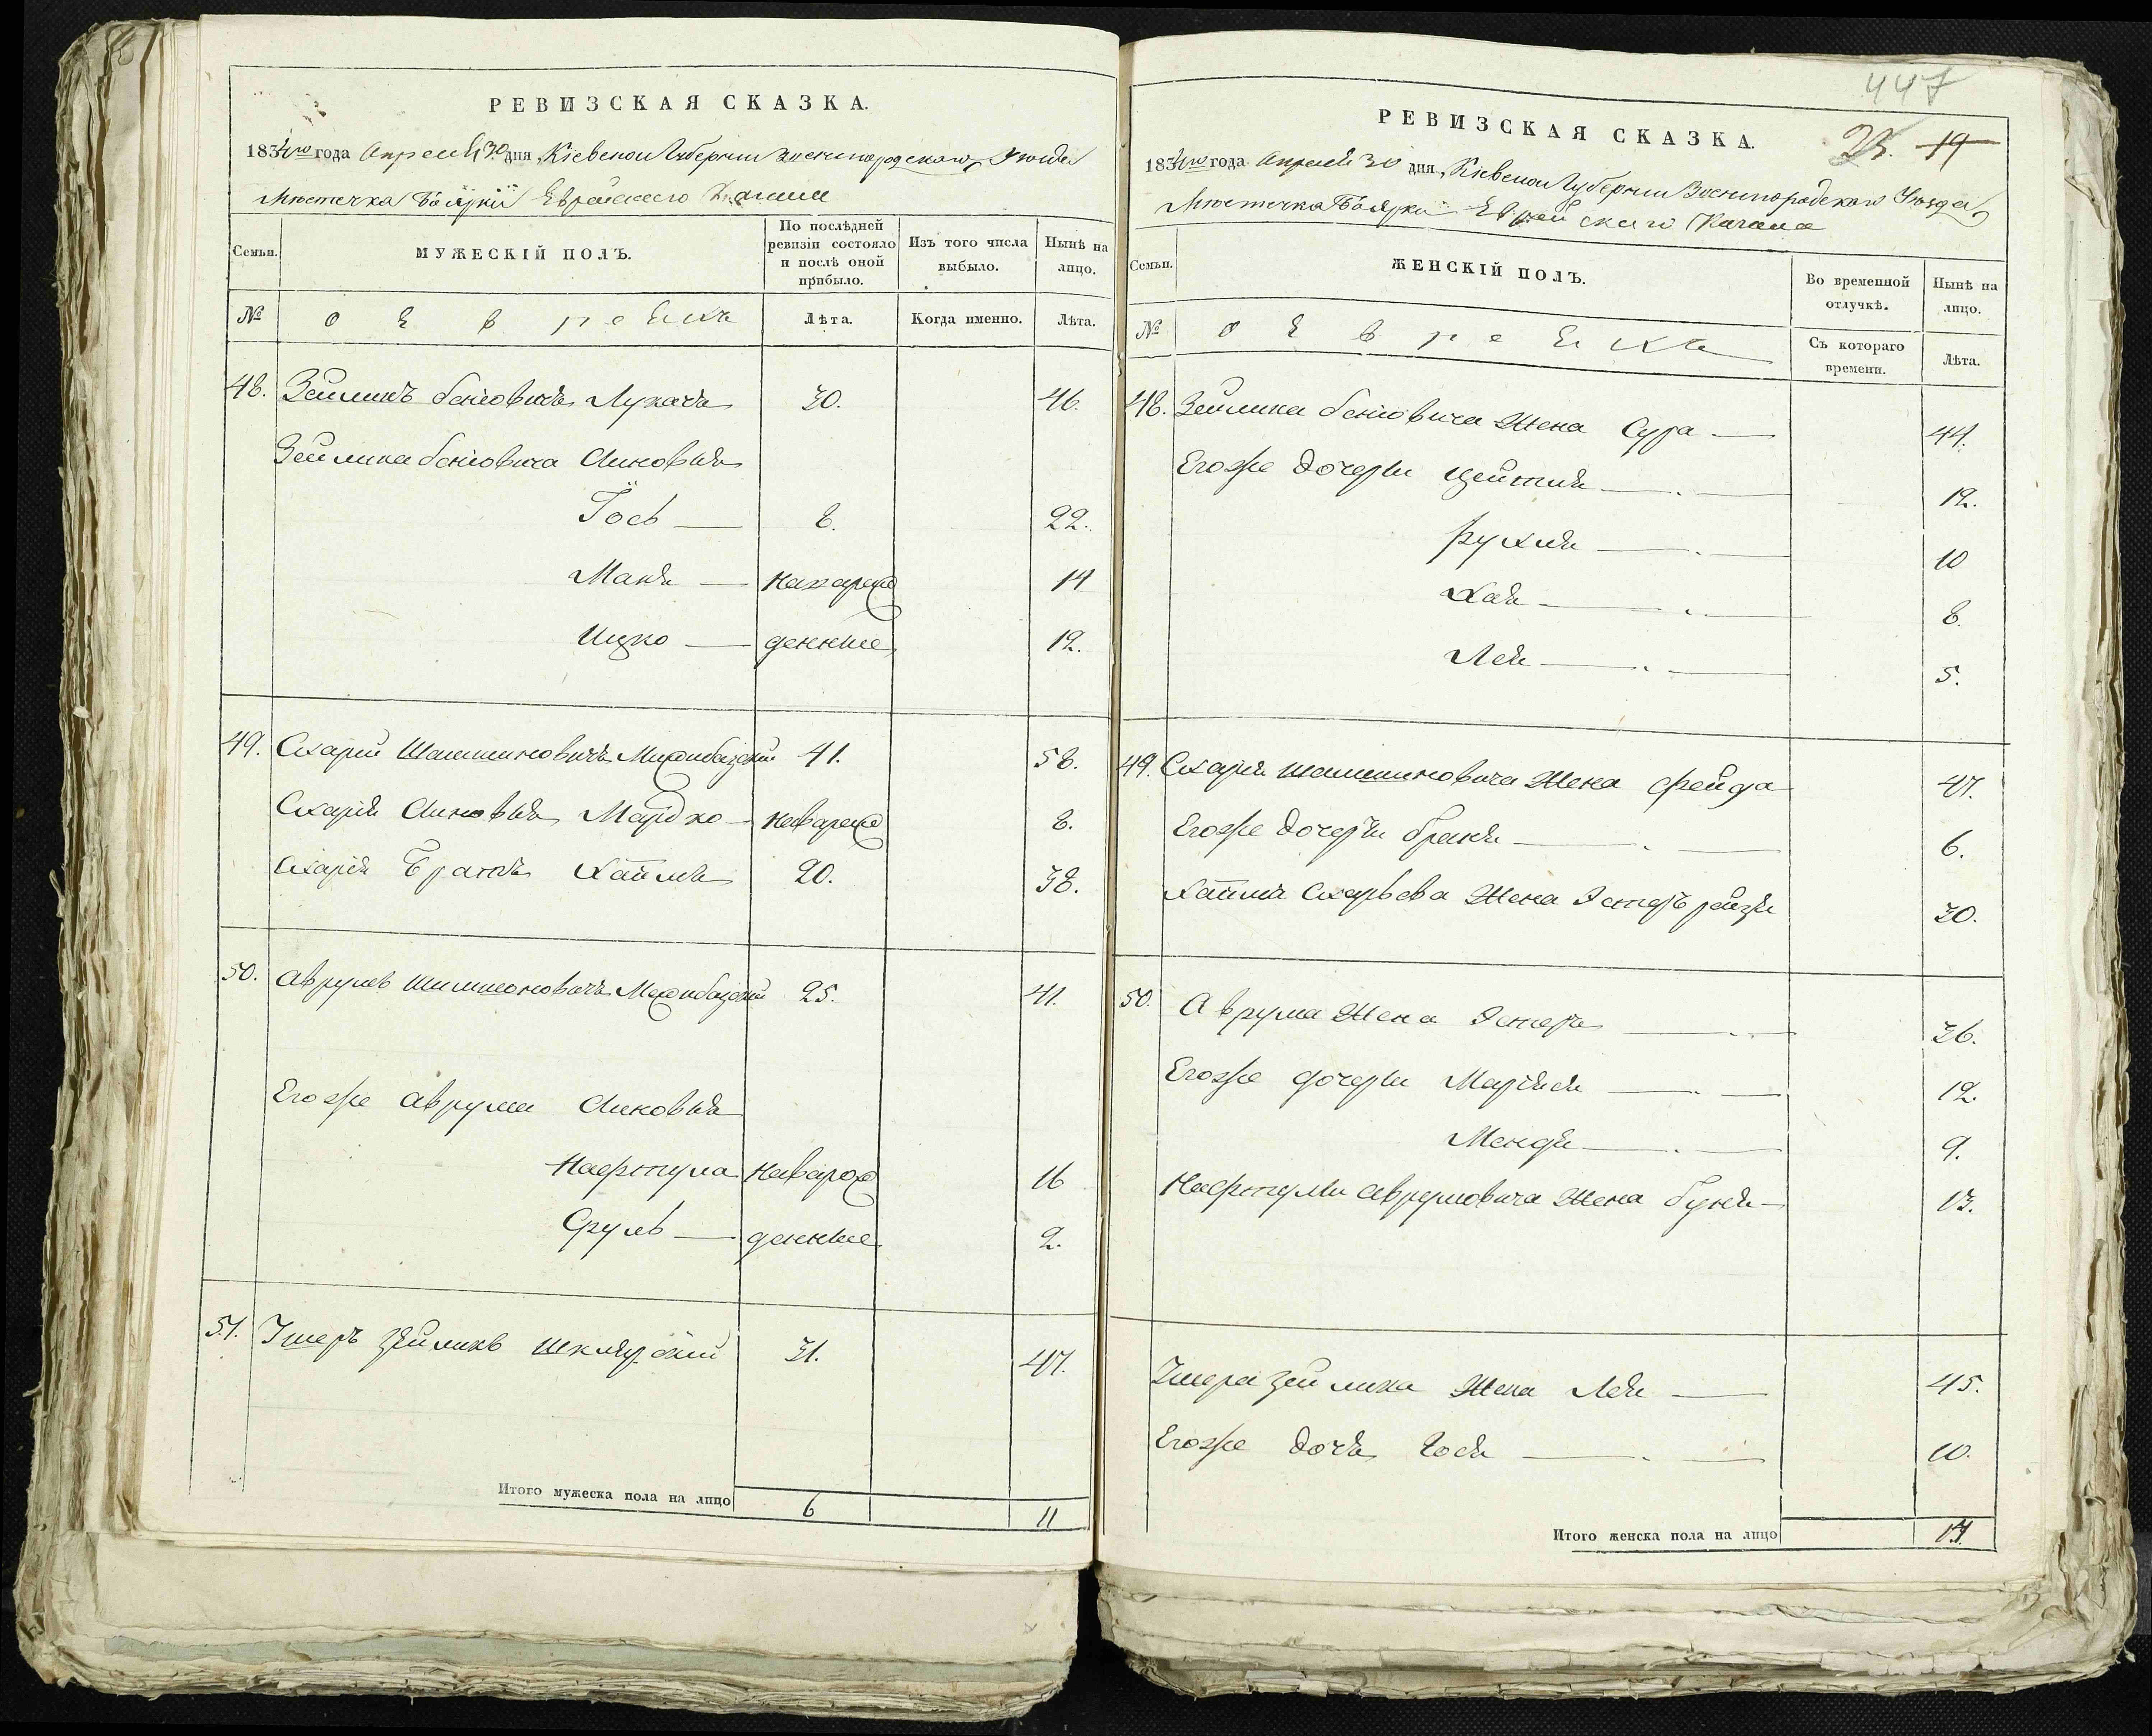 РЕВИЗСКАЯ СКАЗКА.
1834го года Апреля 30 дня, Кіевской Губерніи Звенигородского Уезда
Местечка Боярки Еврейского Кагала
Семьи.
МУЖЕСКІЙ ПОЛЪ.
По послѣдней ревизіи состояло и послѣ оной прибыло.
Изъ того числа выбыло.
Нынѣ на лицо.
№
о Евреяхъ
Лѣта.
Когда именно.
Лѣта.
48. Зейликъ Беніовичъ 30. 46.
Зейлика Беніовича Сыновья
Іось — 8. 22.
Маня — новорож 14
Ицко — денные 12.
49. Схарій 41. 58.
Схарія Сыновья Мордко — новорож 8.
Схарія Братъ Хаимъ 20. 38.
50. Аврумъ Шимшоновичъ 25. 41.
Егоже Аврума Сыновья
Нафтула новорож 16
Сруль — денные 2.
51. Ушеръ Зейликъ Шклярскій 31. 47.
Итого мужеска пола на лицо 6 11
447
23. 19
РЕВИЗСКАЯ СКАЗКА.
1834го года Апреля 30 дня, Кіевской Губерніи Звенигородского Уезда
Местечка Боярки Еврейского Кагала
Семьи.
ЖЕНСКІЙ ПОЛЪ.
Во временной отлучкѣ.
Нынѣ на лицо.
№
о Евреяхъ
Съ котораго времени.
Лѣта.
48. Зейлика Беніовича Жена Сура — 44.
Егоже дочери Цейтля — 12.
Рухля — 10
Хая — 8.
Лея — 5.
49. Схарія Жена Фейга 47.
Егоже дочери Браня — 6.
Хаима Схарьева Жена Эстеръ Рейзя 30.
50. Аврума Жена Эстеръ — 36.
Егоже дочери — 12.
Мендя — 9.
Нафтулы Аврумовича Жена Буня — 13.
Ушера Зейлика Жена Лея — 45.
Егоже дочь Тося — 10.
Итого женска пола на лицо 14